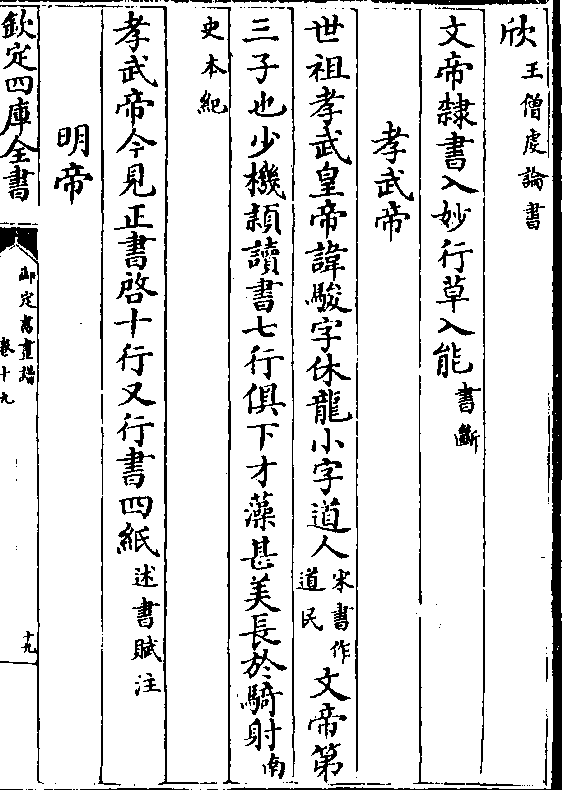 欣王僧虔論書
文帝隸書入妙行草入能書斷
孝武帝
世祖孝武皇帝諱駿字休龍小字道人宋書作道民文帝第
三子也少機穎讀書七行俱下才藻甚美長於騎射南
史本紀
孝武帝今見正書啓十行又行書四紙述書賦注
明帝
欽定四庫全書
御定書畫譜
卷十九
十九